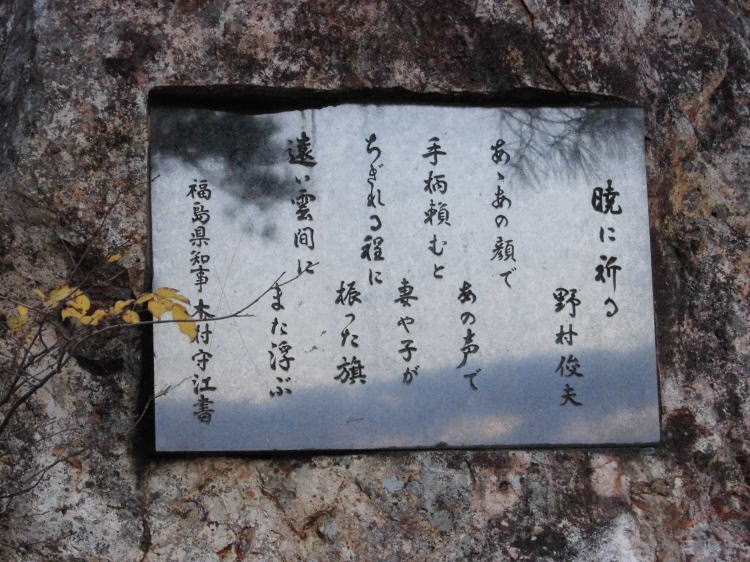 暁に祈る
野村俊夫
あゝあの顔で
あの声で
手柄頼むと
妻や子が
ちぎれる程に
振った旗
遠い雲間に
また浮ぶ
福島県知事 木村守江書